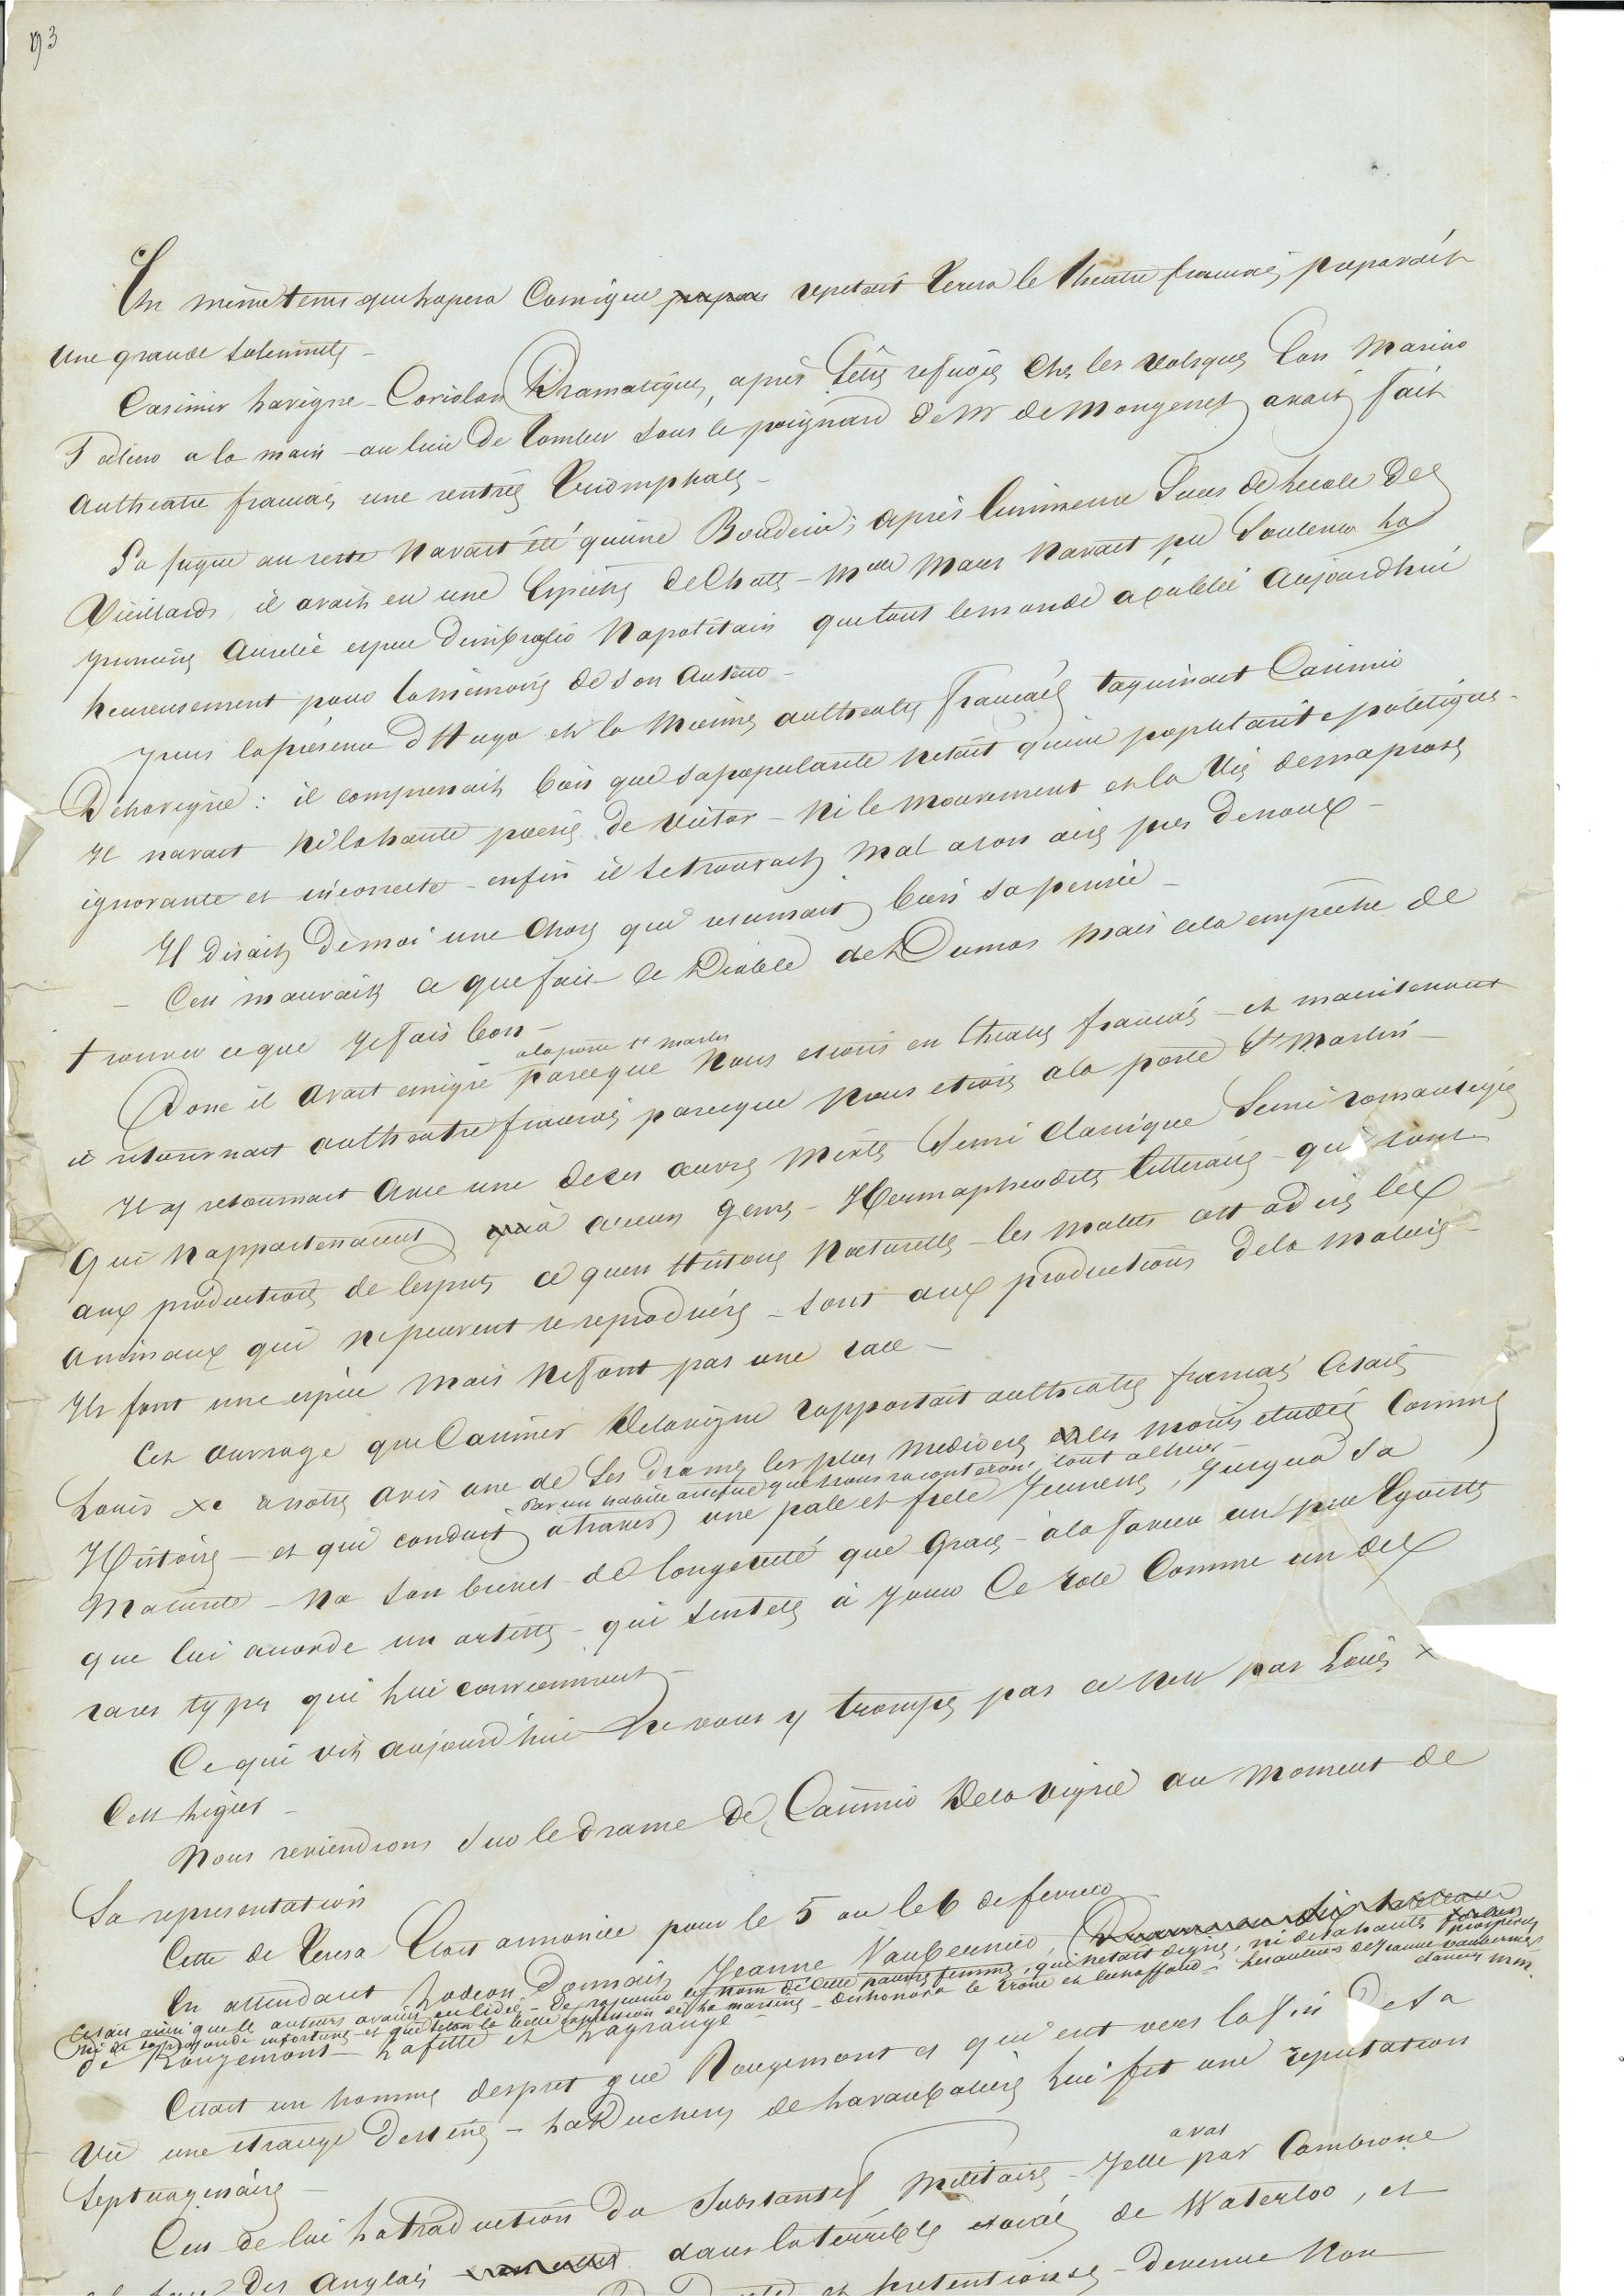 93
En même tems que lopera Comique repetait Teresa le theatre francais preparait
une grande solemnite –
Casimir Lavigne – Coriolan Dramatique, apres setre refugié chez les volsques Son Marino
Faliero a la main – au lieu de tomber sous le poignard de Mr de Mongenet avait fait
au theatre francais une rentrée triomphale –
Sa fugue au reste navait été quune Bouderie; apres limmense Succes de lecole des
Vieillards, il avait eu une Espece de Chute – Mlle Mars navait pu Soutenir la
princesse Aurelie espece dimbroglio Napolitain que tout le monde a oublié aujourdhui
heureusement pour la memoire de son Auteur –
puis la presence d'Hugo et la Mienne au theatre francais taquinait Casimir
Delavigne : il comprenait bien que sa popularite netait quune popularite politique –
Il navait ni la haute poesie de Victor – ni le mouvement et la Vie de ma prose
ignorante et incorrecte – enfin il se trouvait mal a son aise pres de nous –
Il disait de moi une chose qui resumait bien sa pensée –
– Cest mauvais ce que fait ce Diable de Dumas mais cela empeche de
trouver ce que je fais bon –
a la porte St martin
Donc il avait emigré parceque nous etions au theatre francais – et maintenant
il retournait au theatre francais parceque nous etions a la porte St Martin –
Il y retournait avec une de ses œuvres mixtes Semi classique Semi romantique
qui nappartenaient à aucun genre – Hermaphrodites litteraires – qui sont
aux productions de lesprit ce quen Histoire Naturelle – les mulets cest a dire les
animaux qui ne peuvent se reproduire – sont aux productions de la matiere –
Ils font une espece mais ne font pas une race –
Cet ouvrage que Casimir Delavigne rapportait au theatre francais Cetait
Louis XI a notre avis un de ses drames les plus mediocres les moins etudiés comme
par un habile artifice que nous raconterons tout alheure –
Histoire – et qui conduit a travers une pale et frele jeunesse, jusqua sa
Maturité – na son brevet de longevité que grace – a la faveur un peu Egoiste
que lui accorde un artiste – qui sentete à jouer ce role comme un des
rares types qui lui conviennent –
Ce qui vit aujourd'hui ne vous y trompez pas ce nest pas Louis X
Cest Ligier –
Nous reviendrons sur le drame de Casimir Delavigne au moment de
Sa representation
Celle de Teresa etait annoncée pour le 5 ou le 6 de fevrier
En attendant Lodeon donnait Jeanne Vaubernier,
Cetait ainsi que les auteurs avaient eu lidée – de rajeunir le nom de cette pauvre femme, qui netait digne, ni de sa haute prosperité
ni de sa profonde infortune – et qui selon la belle expression de Lamartine – deshonora le trone et lechaffaud – les auteurs de Jeanne Vaubernier
de Rougemont – Lafitte et Lagrange –
Cetait un homme desprit que Rougemont et qui eut vers la fin de sa
vie une etrange destinée – La Duchesse de Lavaubaliere lui fit une reputation
Septuagenaire –
Cest de lui la traduction du Substantif Militaire – Jetté par Cambrone
des Anglais dans la terrible de Waterloo, et
et pretentieuse – devenue non